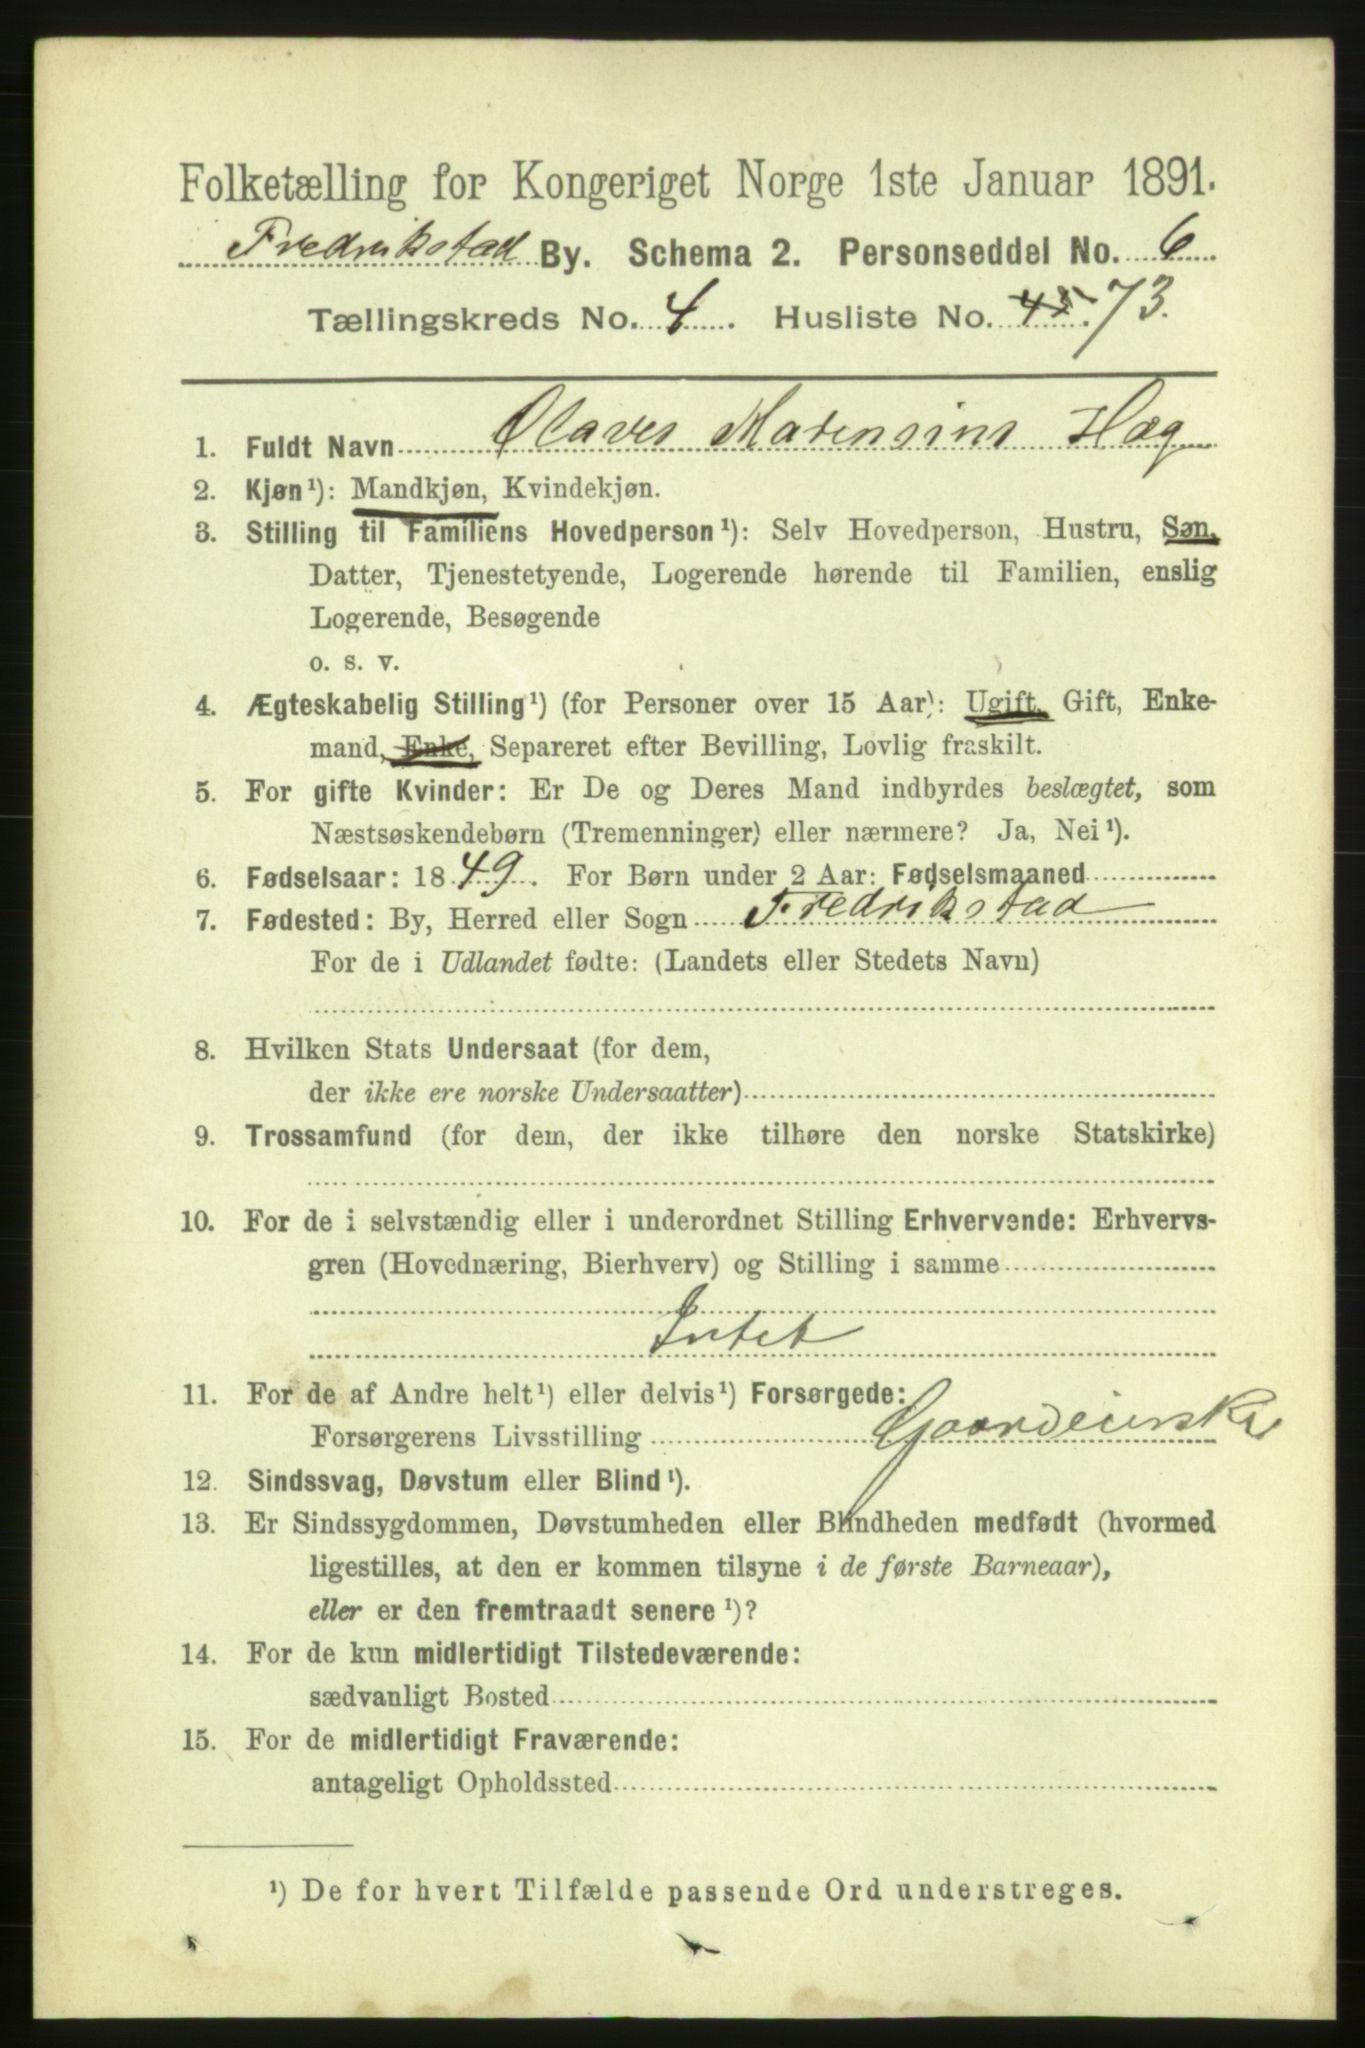 Folketælling for Kongeriget Norge 1ste Januar 1891.
Fredrikstad By. Schema 2. Personseddel No. 6
Tællingskreds No. 4. Husliste No. 45. 73.
1. Fuldt Navn Olaves Marensins Hæg
2. Kjøn¹): Mandkjøn, Kvindekjøn.
3. Stilling til Familiens Hovedperson¹): Selv Hovedperson, Hustru, Søn,
Datter, Tjenestetyende, Logerende hørende til Familien, enslig
Logerende, Besøgende
o. s. v.
4. Ægteskabelig Stilling¹) (for Personer over 15 Aar): Ugift, Gift, Enke-
mand, Enke, Separeret efter Bevilling, Lovlig fraskilt.
5. For gifte Kvinder: Er De og Deres Mand indbyrdes beslægtet, som
Næstsøskendebørn (Tremenninger) eller nærmere? Ja, Nei¹).
6. Fødselsaar: 1849. For Børn under 2 Aar: Fødselsmaaned
7. Fødested: By, Herred eller Sogn Fredrikstad
For de i Udlandet fødte: (Landets eller Stedets Navn)
8. Hvilken Stats Undersaat (for dem,
der ikke ere norske Undersaatter)
9. Trossamfund (for dem, der ikke tilhøre den norske Statskirke)
10. For de i selvstændig eller i underordnet Stilling Erhvervende: Erhvervs-
gren (Hovednæring, Bierhverv) og Stilling i samme
Intet
11. For de af Andre helt¹) eller delvis¹) Forsørgede:
Forsørgerens Livsstilling Gaardeierske
12. Sindssvag, Døvstum eller Blind¹).
13. Er Sindssygdommen, Døvstumheden eller Blindheden medfødt (hvormed
ligestilles, at den er kommen tilsyne i de første Barneaar),
eller er den fremtraadt senere¹)?
14. For de kun midlertidigt Tilstedeværende:
sædvanligt Bosted
15. For de midlertidigt Fraværende:
antageligt Opholdssted
¹) De for hvert Tilfælde passende Ord understreges.